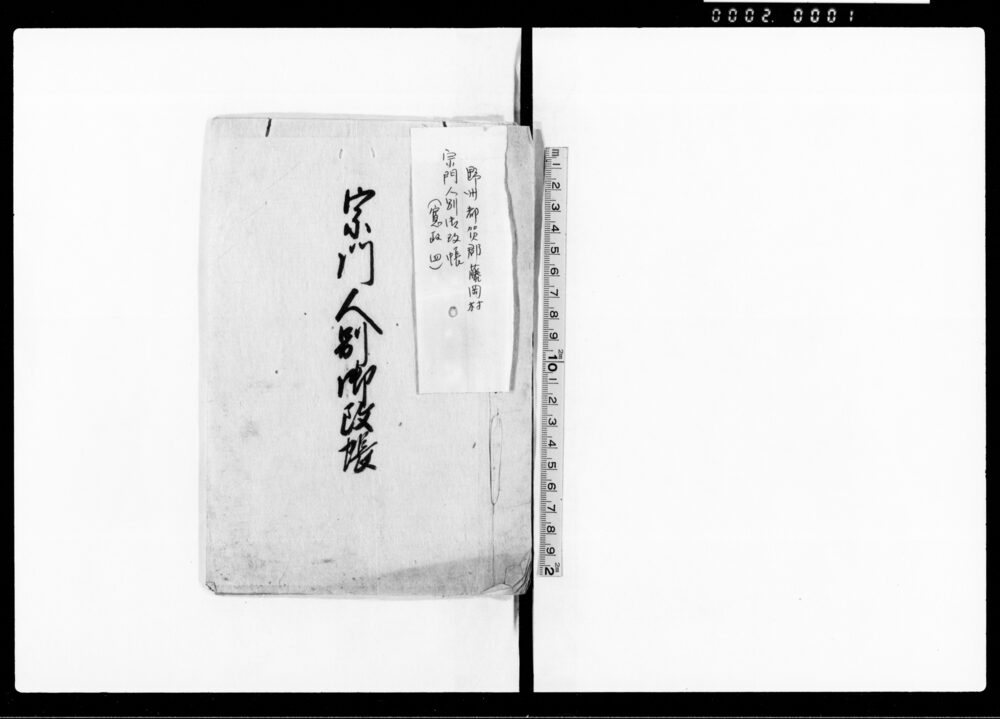 0002. 0001
野州都賀郡藤岡村
宗門人別御改帳
(寛政四)
宗門人別御改帳
m 1 2 3 4 5 6 7 8 9 10 1 2 3 4 5 6 7 8 9 2